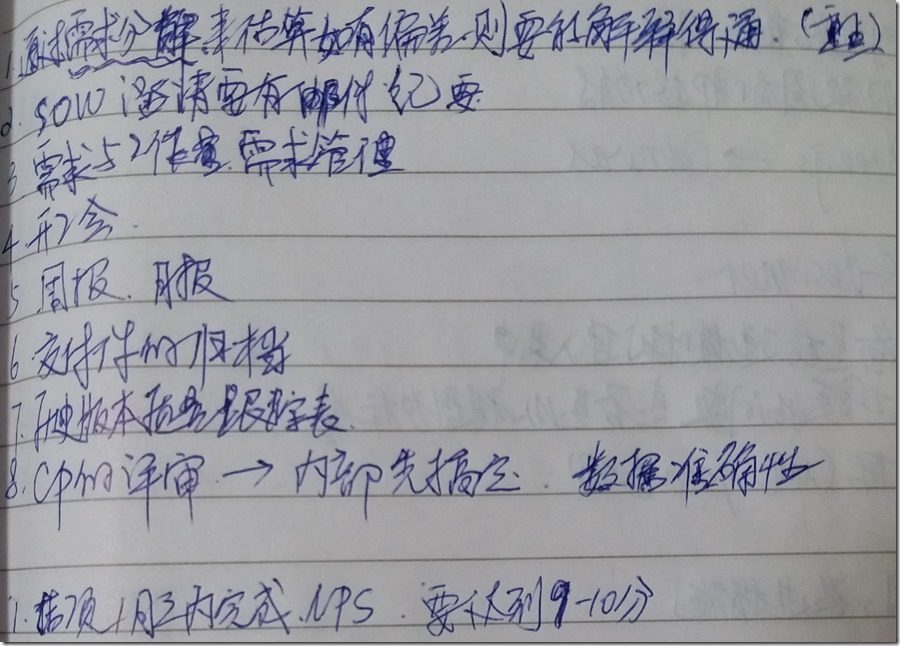 1. 通过需求分解来估算如有偏差,则要能解释得通.(重点)
2. SOW 澄清要有邮件纪要
3 需求与工作量.需求管理
4.开工会.
5 周报. 月报
6 交付件的归档
7. 版本质量跟踪表.
8. CP的评审 → 内部先搞定. 数据准确性
1. 结项1月之内完成.NPS. 要达到9-10分